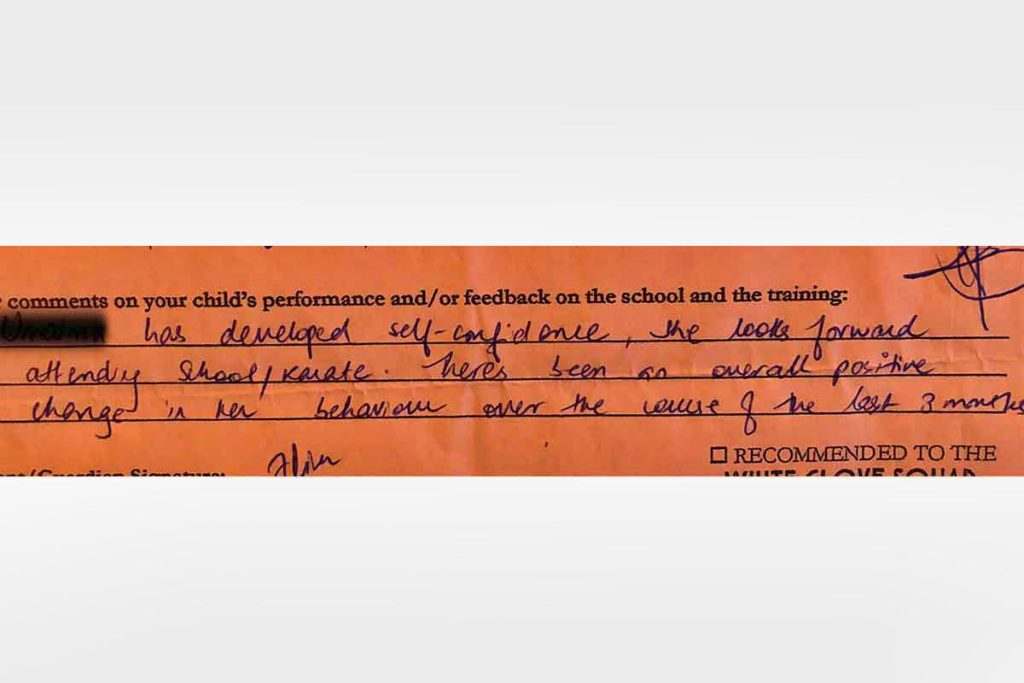 comments on your child's performance and/or feedback on the school and the training:
has developed self-confidence, she looks forward
attending school/karate. there's been an overall positive
change in her behaviour over the course of the last 3 months
Signature:
RECOMMENDED TO THE
WHITE GLOVE SQUAD